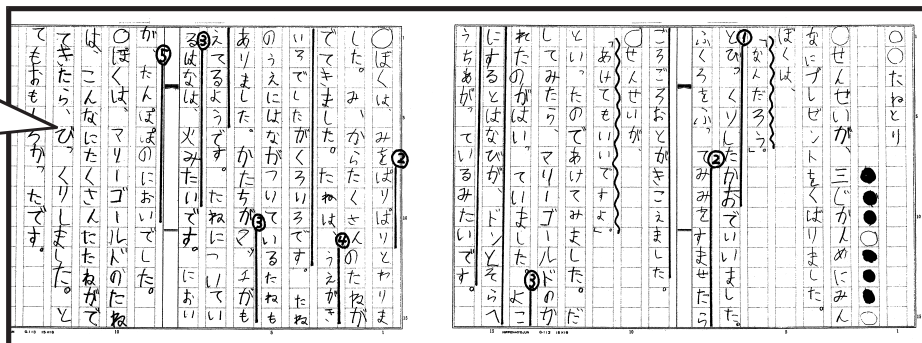 ○○たねとり
●●●○●●●○
○せんせいが、三じかんめにみん
なにプレゼントをくばりました。
ぼくは、
「なんだろう。」
①
とびっくりしたかおでいいました。
②
ふくろをふってみみをすませたら
ごろごろおとがきこえました。
○せんせいが、
「あけてもいいですよ」。
といったのであけてみました。だ
してみたら、マリーゴールドのか
れたのがはいっていました。よこ
③
にするとはなびが、ドンとそらへ
うちあがっているみたいです。
②
○ぼくは、みをばりばりとやりま
した。みからたくさんのたねが
④
でてきました。たねは、うえがき
いろでしたがくろいろです。たね
のうえにはながついているたねも
③
ありました。かたちがマッチがも
えてるようです。たねについてい
③
るはなは、火みたいです。におい
⑤
が、たんぽぽのにおいでした。
○ぼくは、マリーゴールドのたね
は、こんなにたくさんたたねがで
てきたら、びっくりしました。と
てもおもしろかったです。